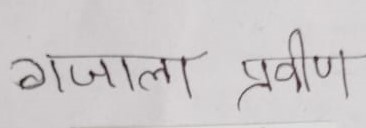 गजाला प्रवीण